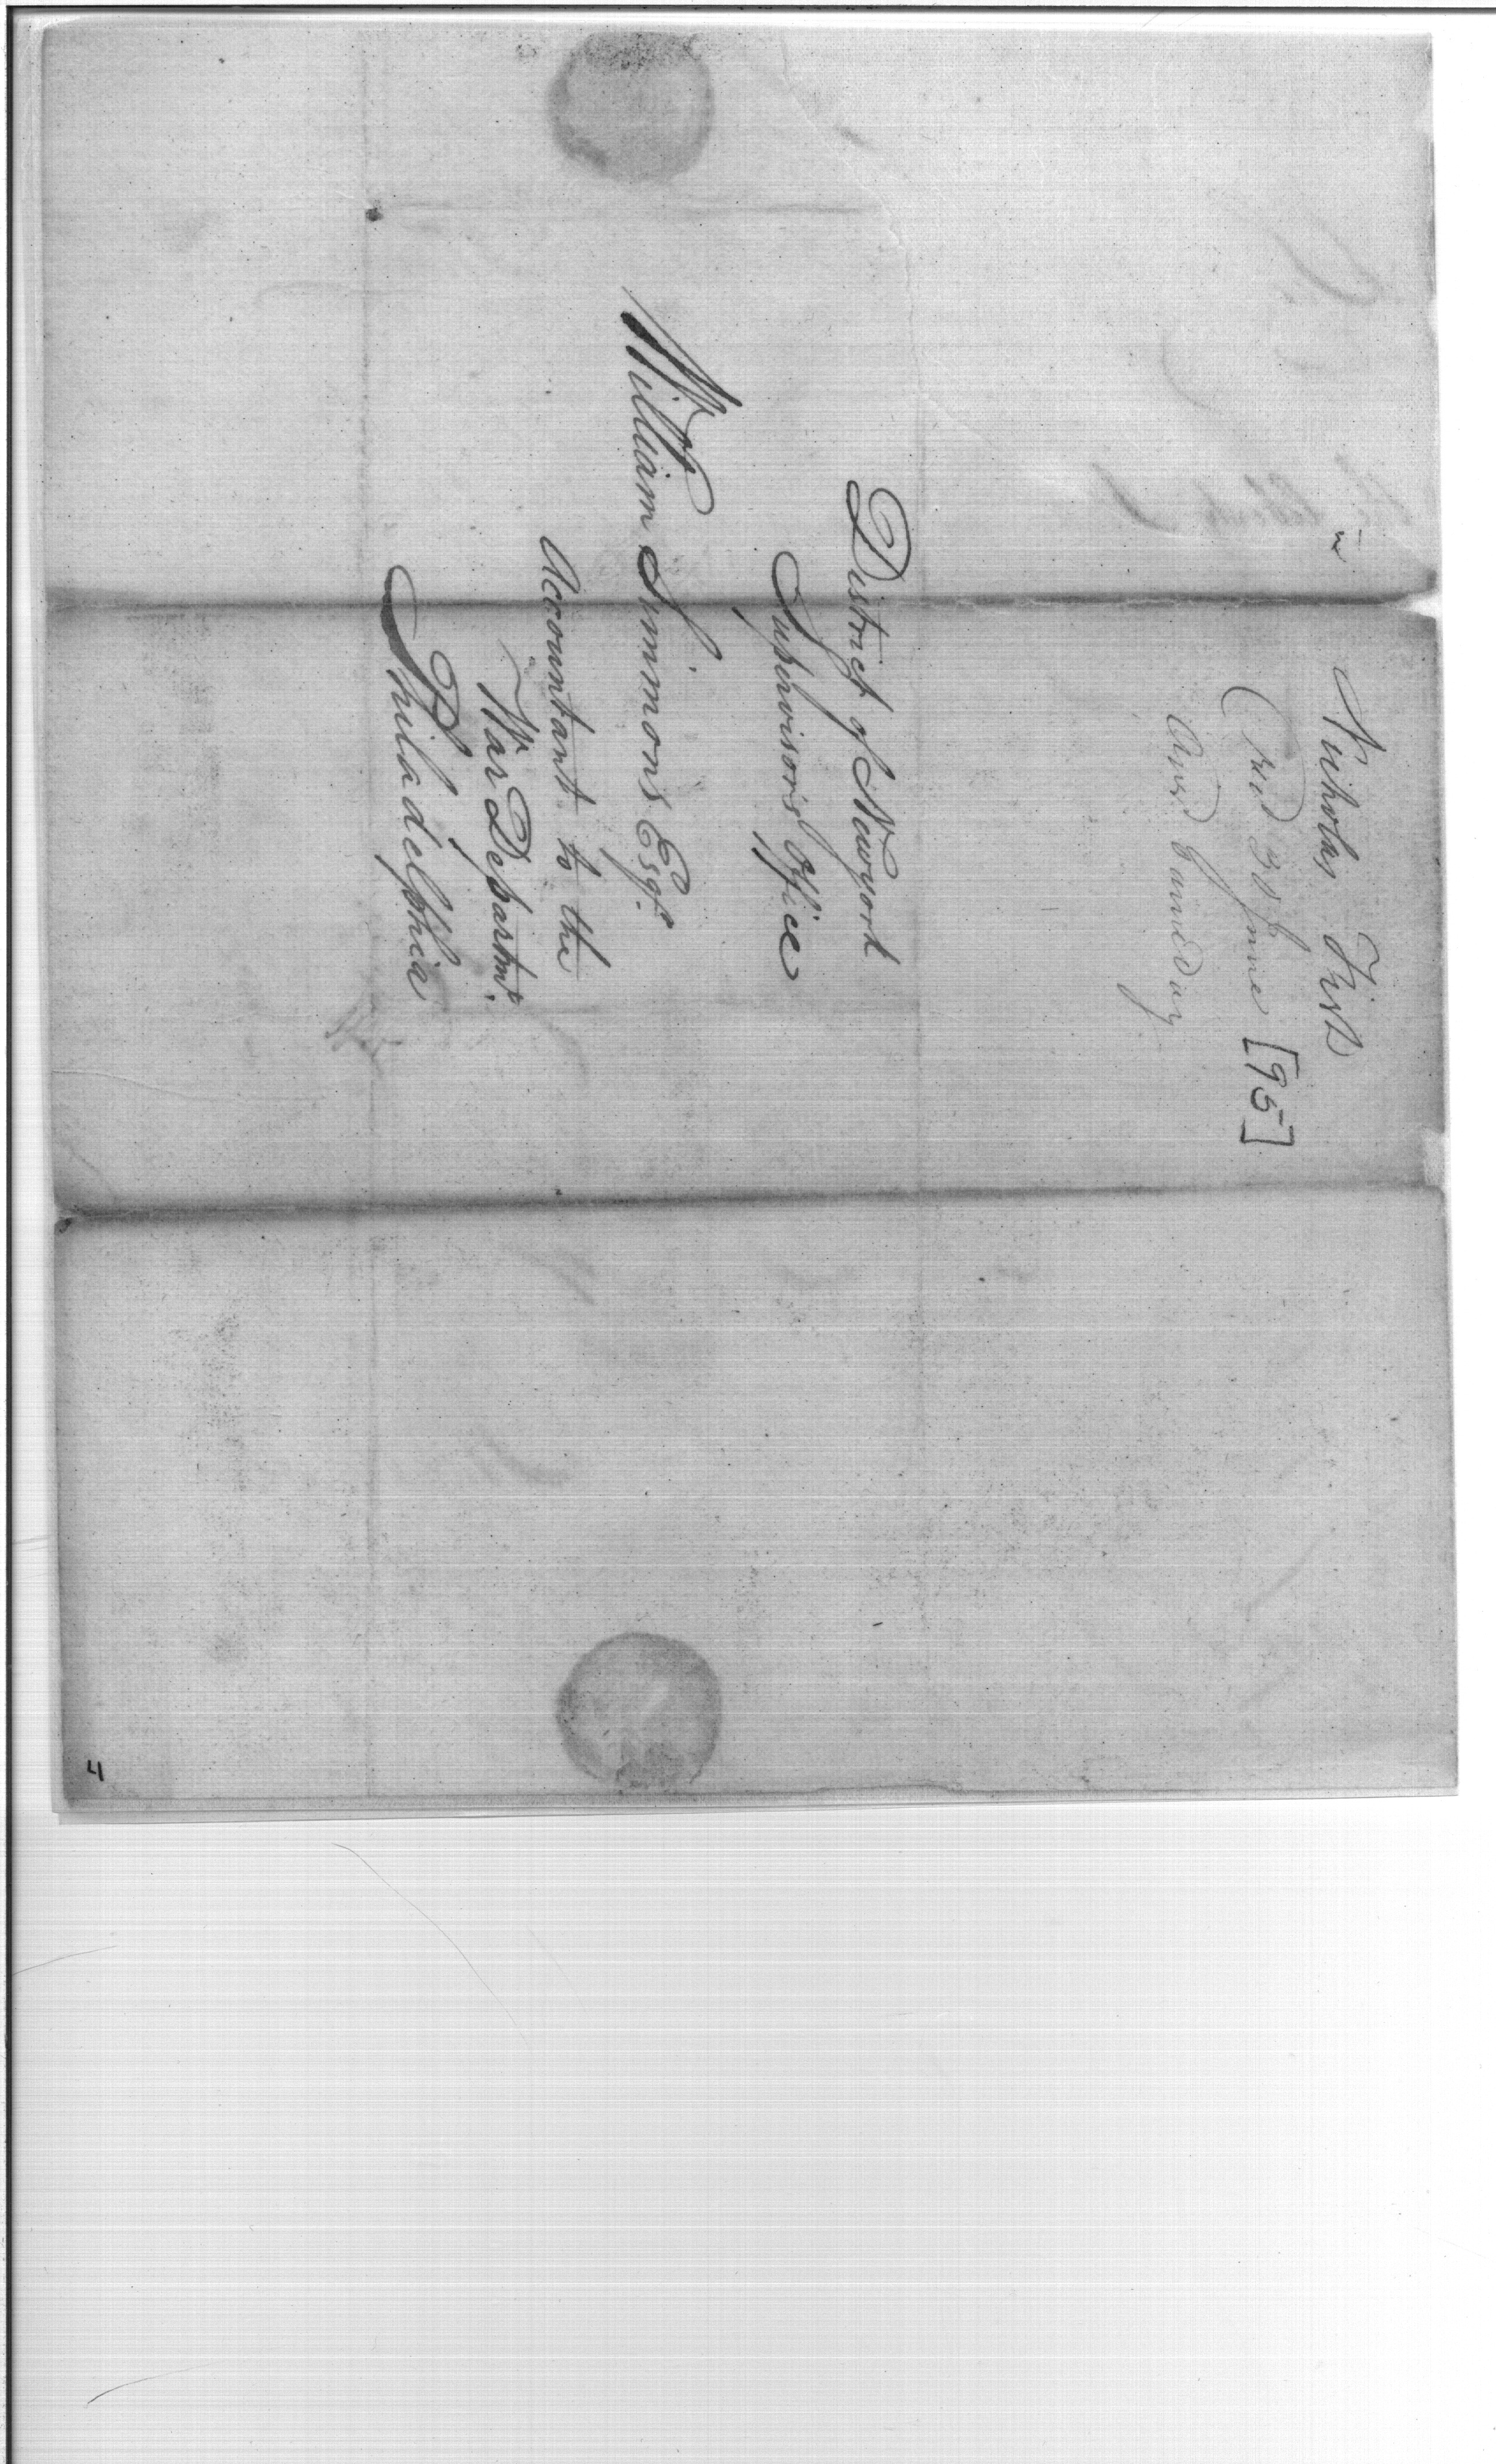 Nicholas Fish
recd 30 June [95]
Ansd Same Day
District of Newyork
Supervisors Office
William Simmons Esqr.
Accountant to the
War Departmt.
Philadelphia
4